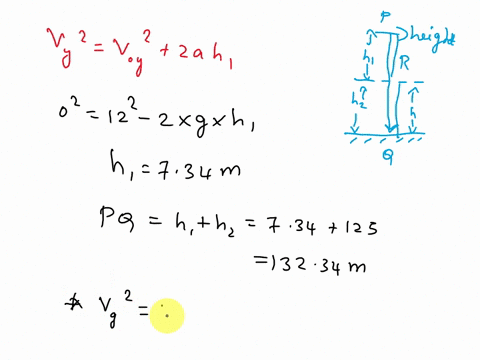 Vy² = Voy² + 2ah₁
0² = 12² - 2×g×h₁
h₁ = 7.34 m
PQ = h₁ + h₂ = 7.34 + 125
= 132.34 m
* Vg² =
P
height
h₁
R
h₂
h
Q